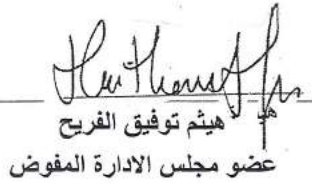 هيثم توفيق الفريح
عضو مجلس الادارة المفوض